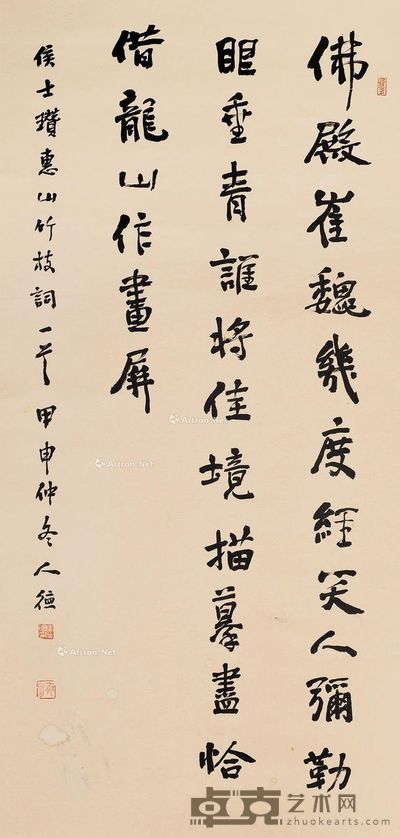 佛殿崔巍幾度經笑人彌勒
眼垂青誰將佳境描摹盡恰
借龍山作畫屏
侯士瓚惠山竹枝詞一首甲申仲冬人德
Artron.Net
Artron.Net
Artron.Net
Artron.Net
卓克艺术网
zhuokearts.com